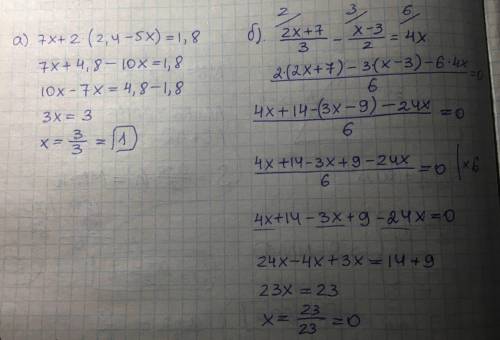 а) 7x+2 (2,4-5x)=1,8
7x+4,8-10x=1,8
10x-7x=4,8-1,8
3x=3
x=3/3=1
б) 2/ (2x+7)/3 - 3/ (x-3)/2 = 6/ 4x
(2·(2x+7)-3·(x-3)-6·4x)/6=0
(4x+14-(3x-9)-24x)/6=0
(4x+14-3x+9-24x)/6=0 |x6
4x+14-3x+9-24x=0
24x-4x+3x=14+9
23x=23
x=23/23=0